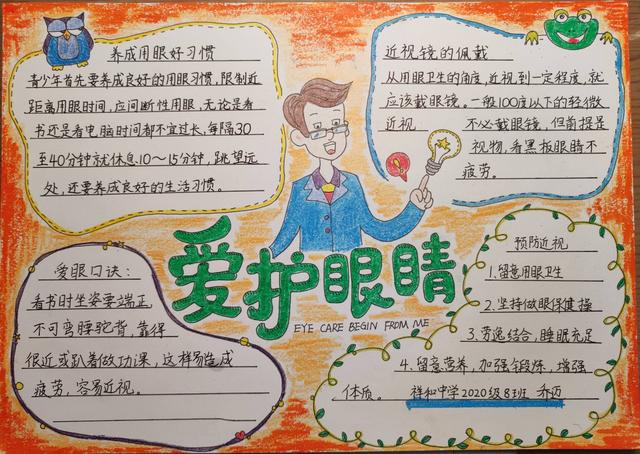 养成用眼好习惯
青少年首先要养成良好的用眼习惯，限制近
距离用眼时间，应间断性用眼，无论是看
书还是看电脑时间都不宜过长，每隔30
至40分钟就休息10～15分钟，跳望远
处，还要养成良好的生活习惯。
近视镜的佩戴
从用眼卫生的角度，近视到一定程度，就
应该戴眼镜。一般100度以下的轻微
近视 不必戴眼镜，但前提是
视物，看黑板眼睛不
疲劳。
爱护眼睛
EYE CARE BEGIN FROM ME
爱眼口诀：
看书时坐姿要端正
不可弯腰驼背，靠得
很近或趴着做功课，这样易造成
疲劳，容易近视。
预防近视
1.留意用眼卫生
2.坚持做眼保健操
3.劳逸结合，睡眠充足
4.留意营养，加强锻炼，增强
体质。 祥和中学2020级8班 乔迈